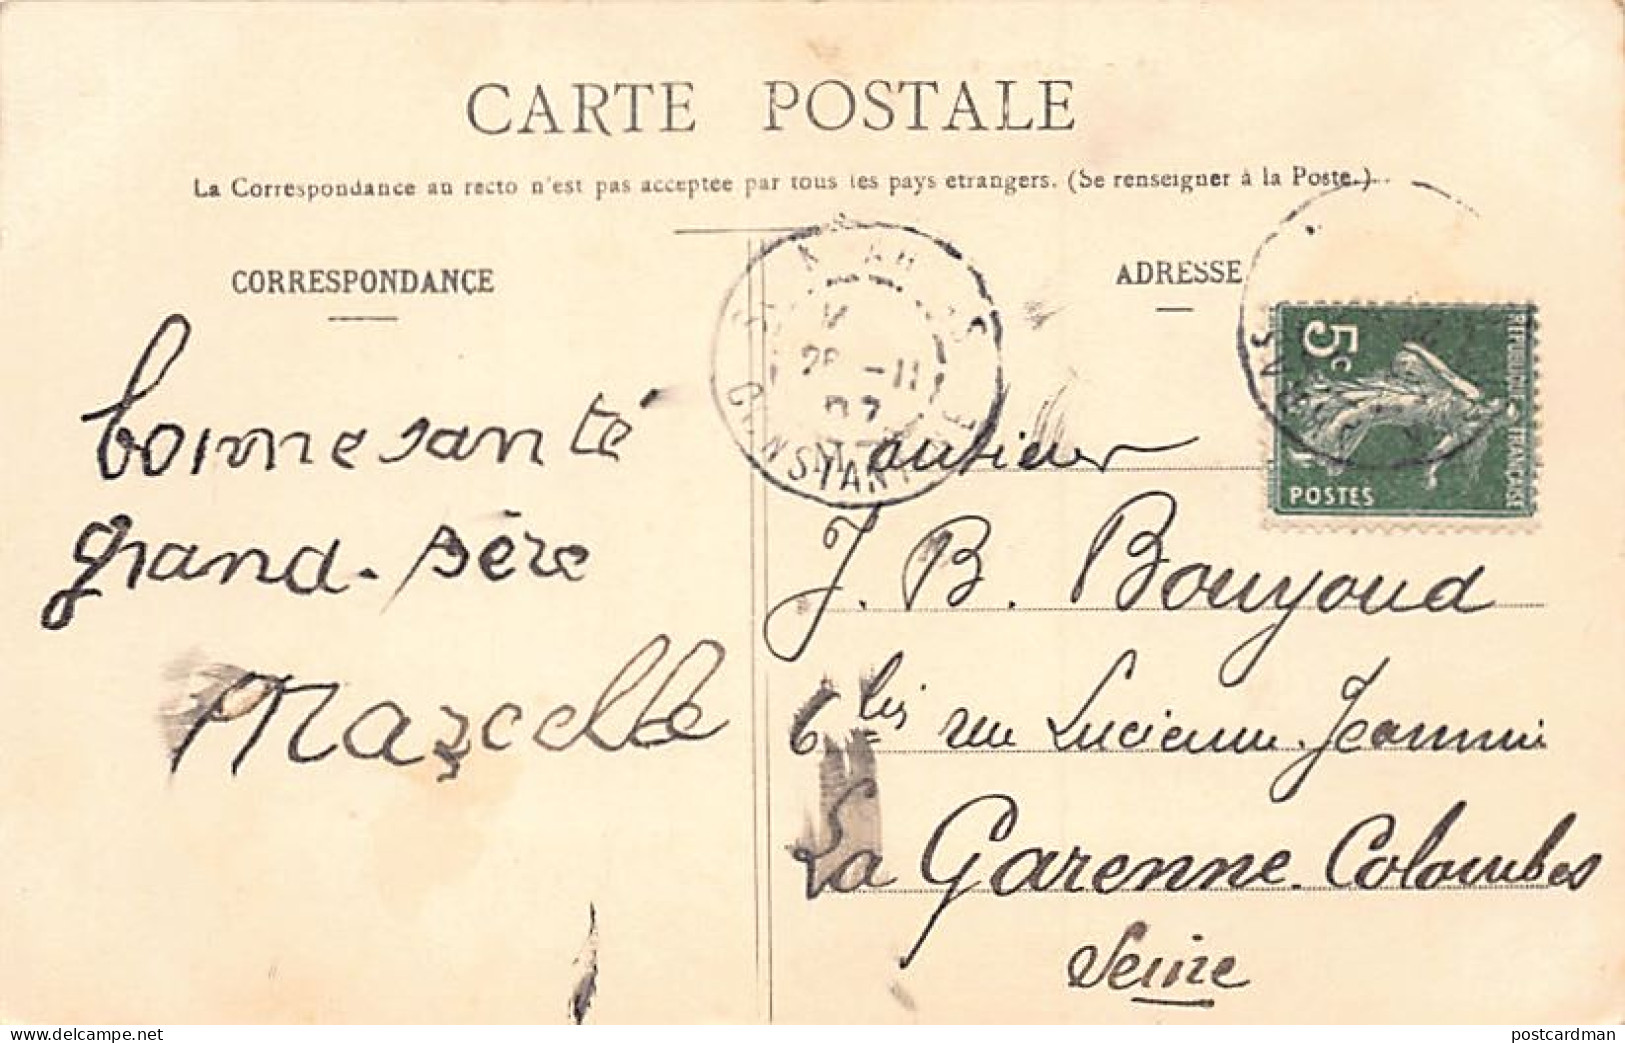 CARTE POSTALE
La Correspondance au recto n'est pas acceptée par tous les pays étrangers. (Se renseigner à la Poste.)
CORRESPONDANCE
bonne santé
grand-père
Marcelle
ADRESSE
J. B. Bouyoud
6 bis rue Lucienne Jeannin
La Garenne-Colombes
Seine
5c
REPUBLIQUE FRANÇAISE
POSTES
www.delcampe.net
postcardman